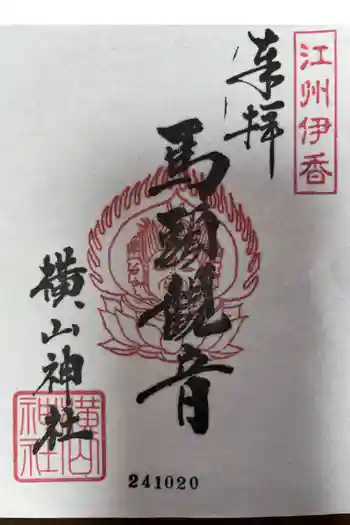 江州伊香
奉拝
馬頭観音
横山神社
横山神社
241020